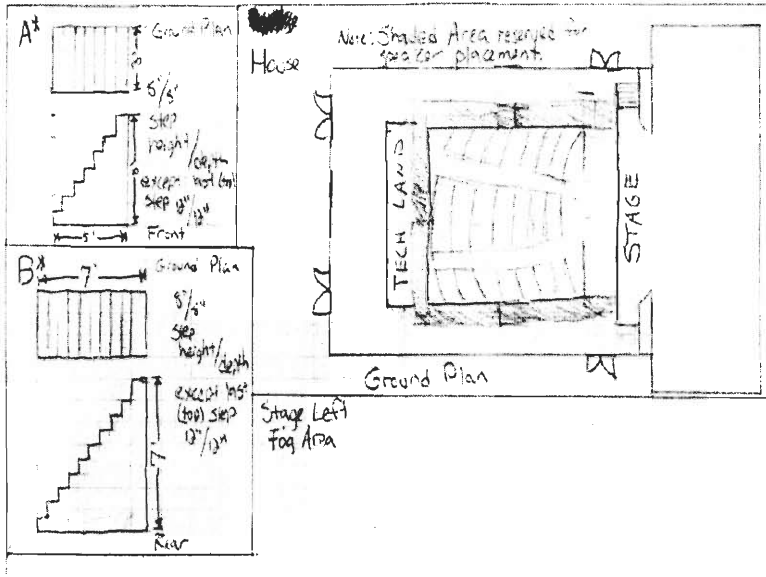 A*
Ground Plan
8"/8"
step
height/
depth
except last (top)
step 12"/12"
5'
Front
B*
7'
Ground Plan
8"/8"
step
height/depth
except last
(top) step
12"/12"
7'
Rear
House
Note: Shaded Area reserved for
speaker placement.
TECH LAND
STAGE
Ground Plan
Stage Left
Fog Area